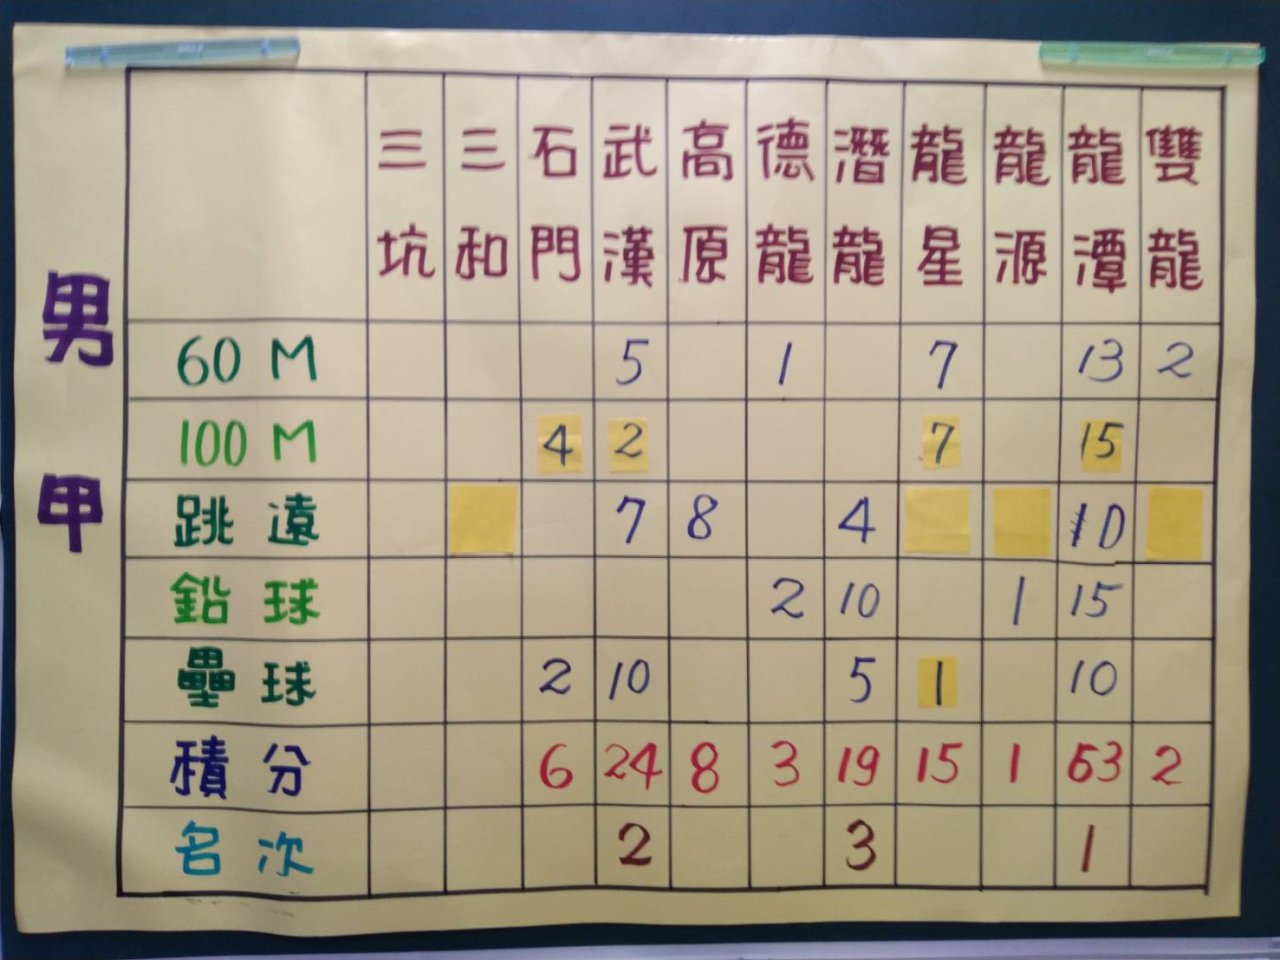 男甲
三坑 三和 石門 武漢 高原 德龍 潛龍 龍星 龍源 龍潭 雙龍
60 M 5 1 7 13 2
100 M 4 2 7 15
跳遠 7 8 4 10
鉛球 2 10 1 15
壘球 2 10 5 1 10
積分 6 24 8 3 19 15 1 63 2
名次 2 3 1